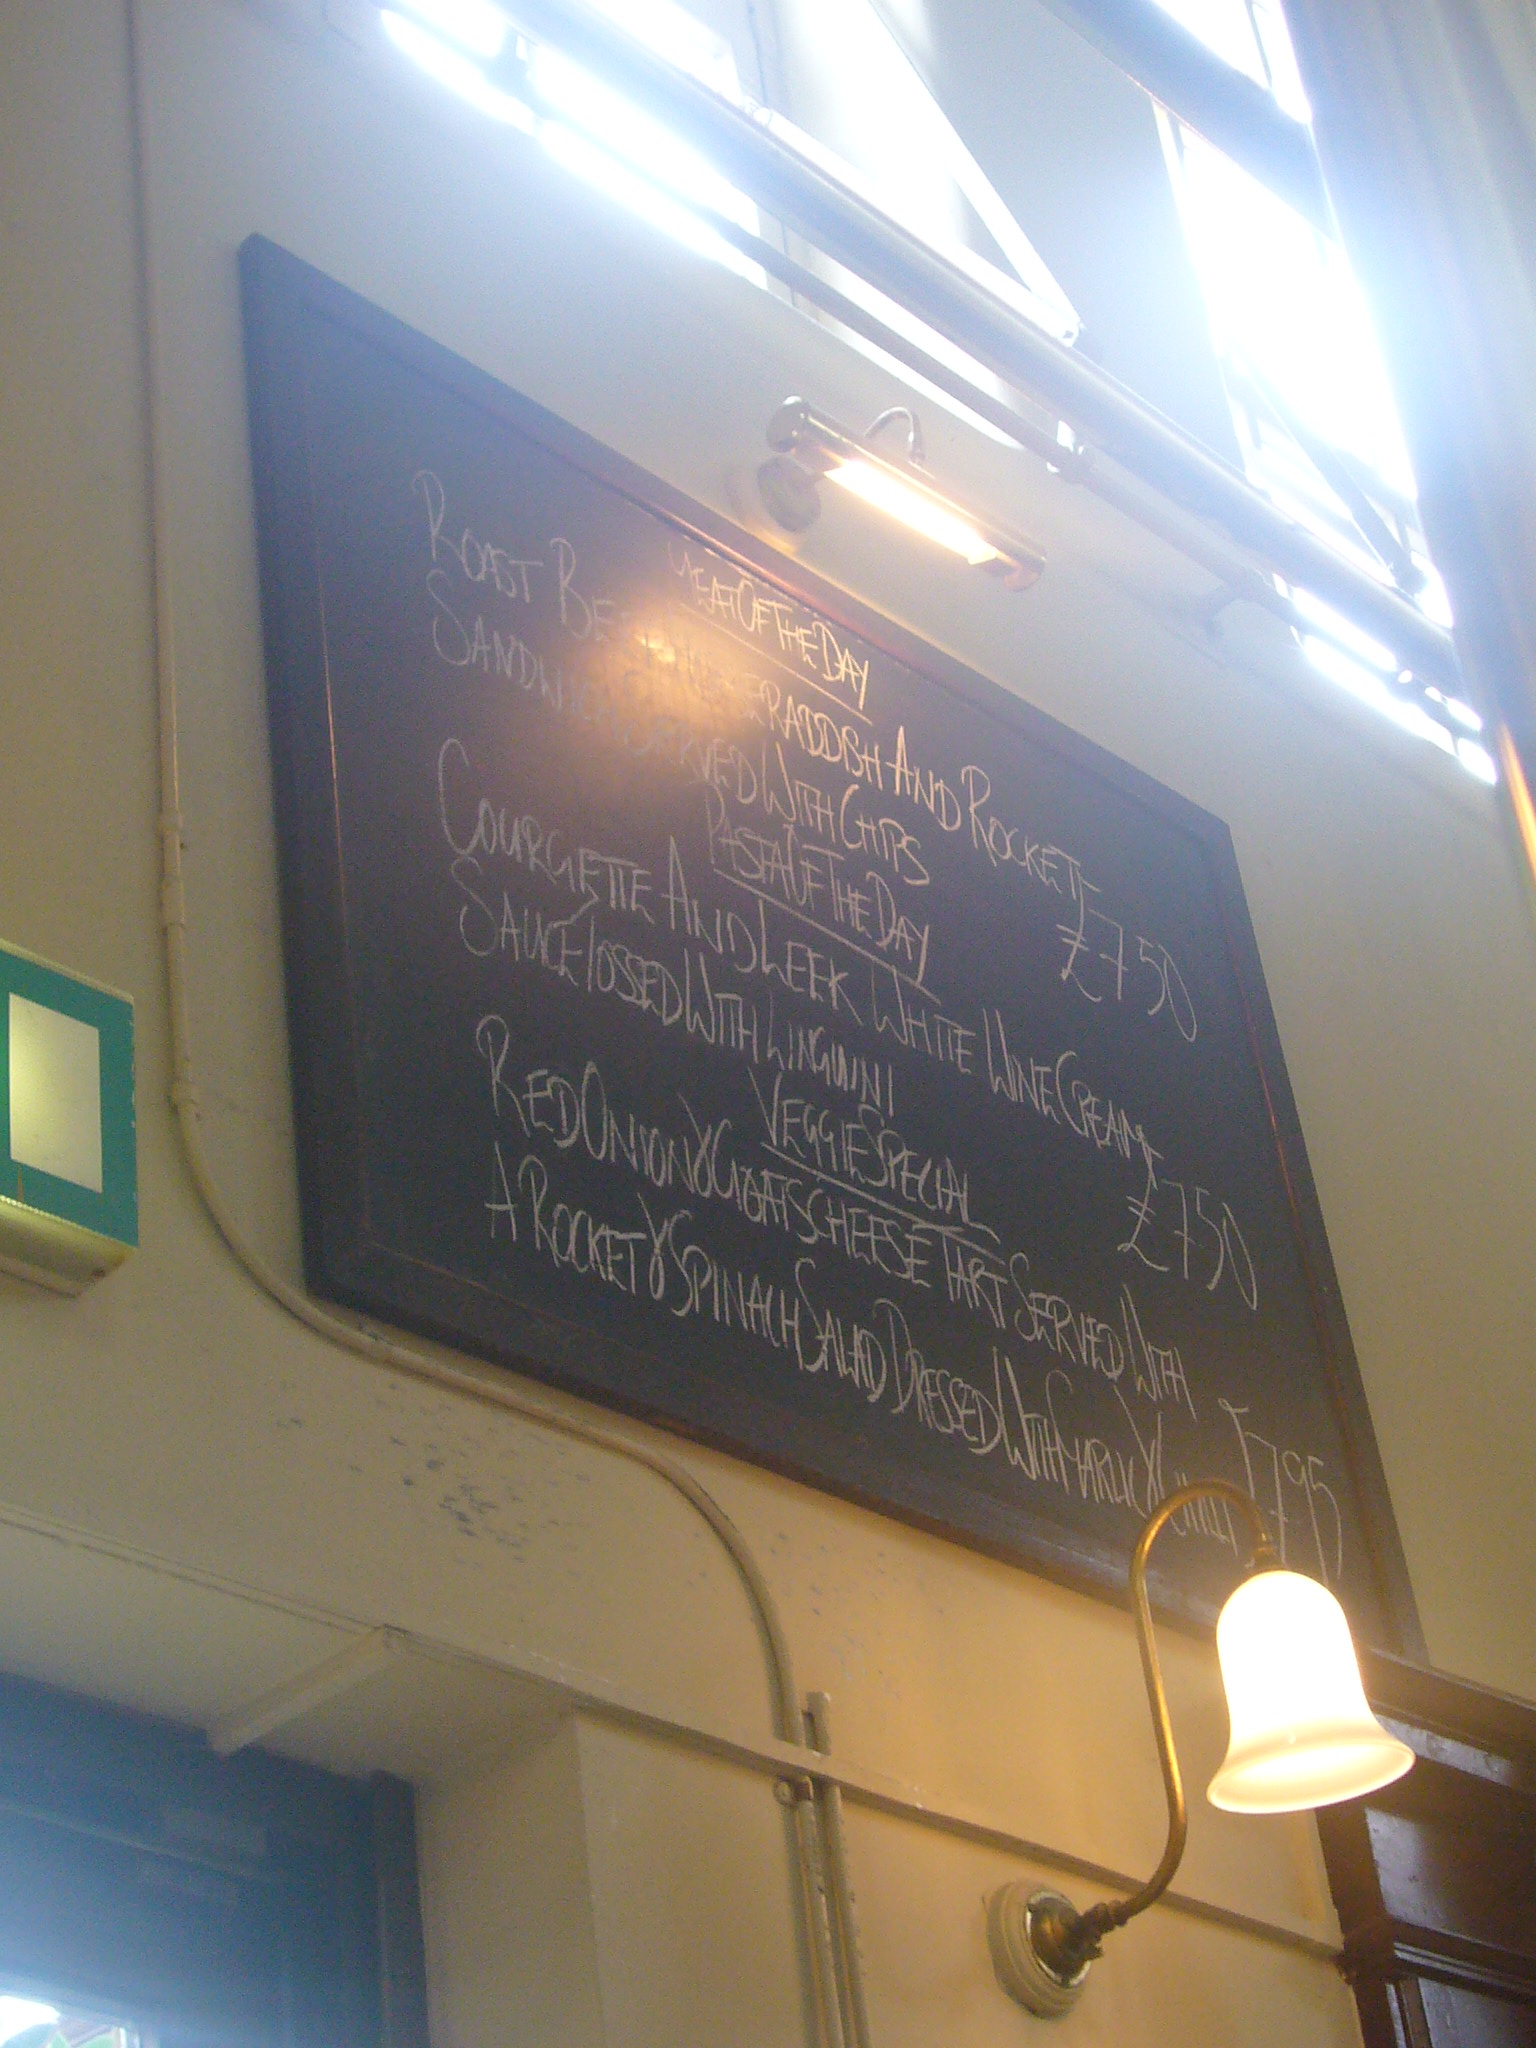 MEAT OF THE DAY
ROAST BEEF HORSERADDISH AND ROCKET
SANDWICH SERVED WITH CHIPS £7 50
PASTA OF THE DAY
COURGETTE AND LEEK WHITE WINE CREAM
SAUCE TOSSED WITH LINGUINI £7 50
VEGGIE SPECIAL
RED ONION & GOATS CHEESE TART SERVED WITH
A ROCKET & SPINACH SALAD DRESSED WITH GARLIC & CHILLI £7 95